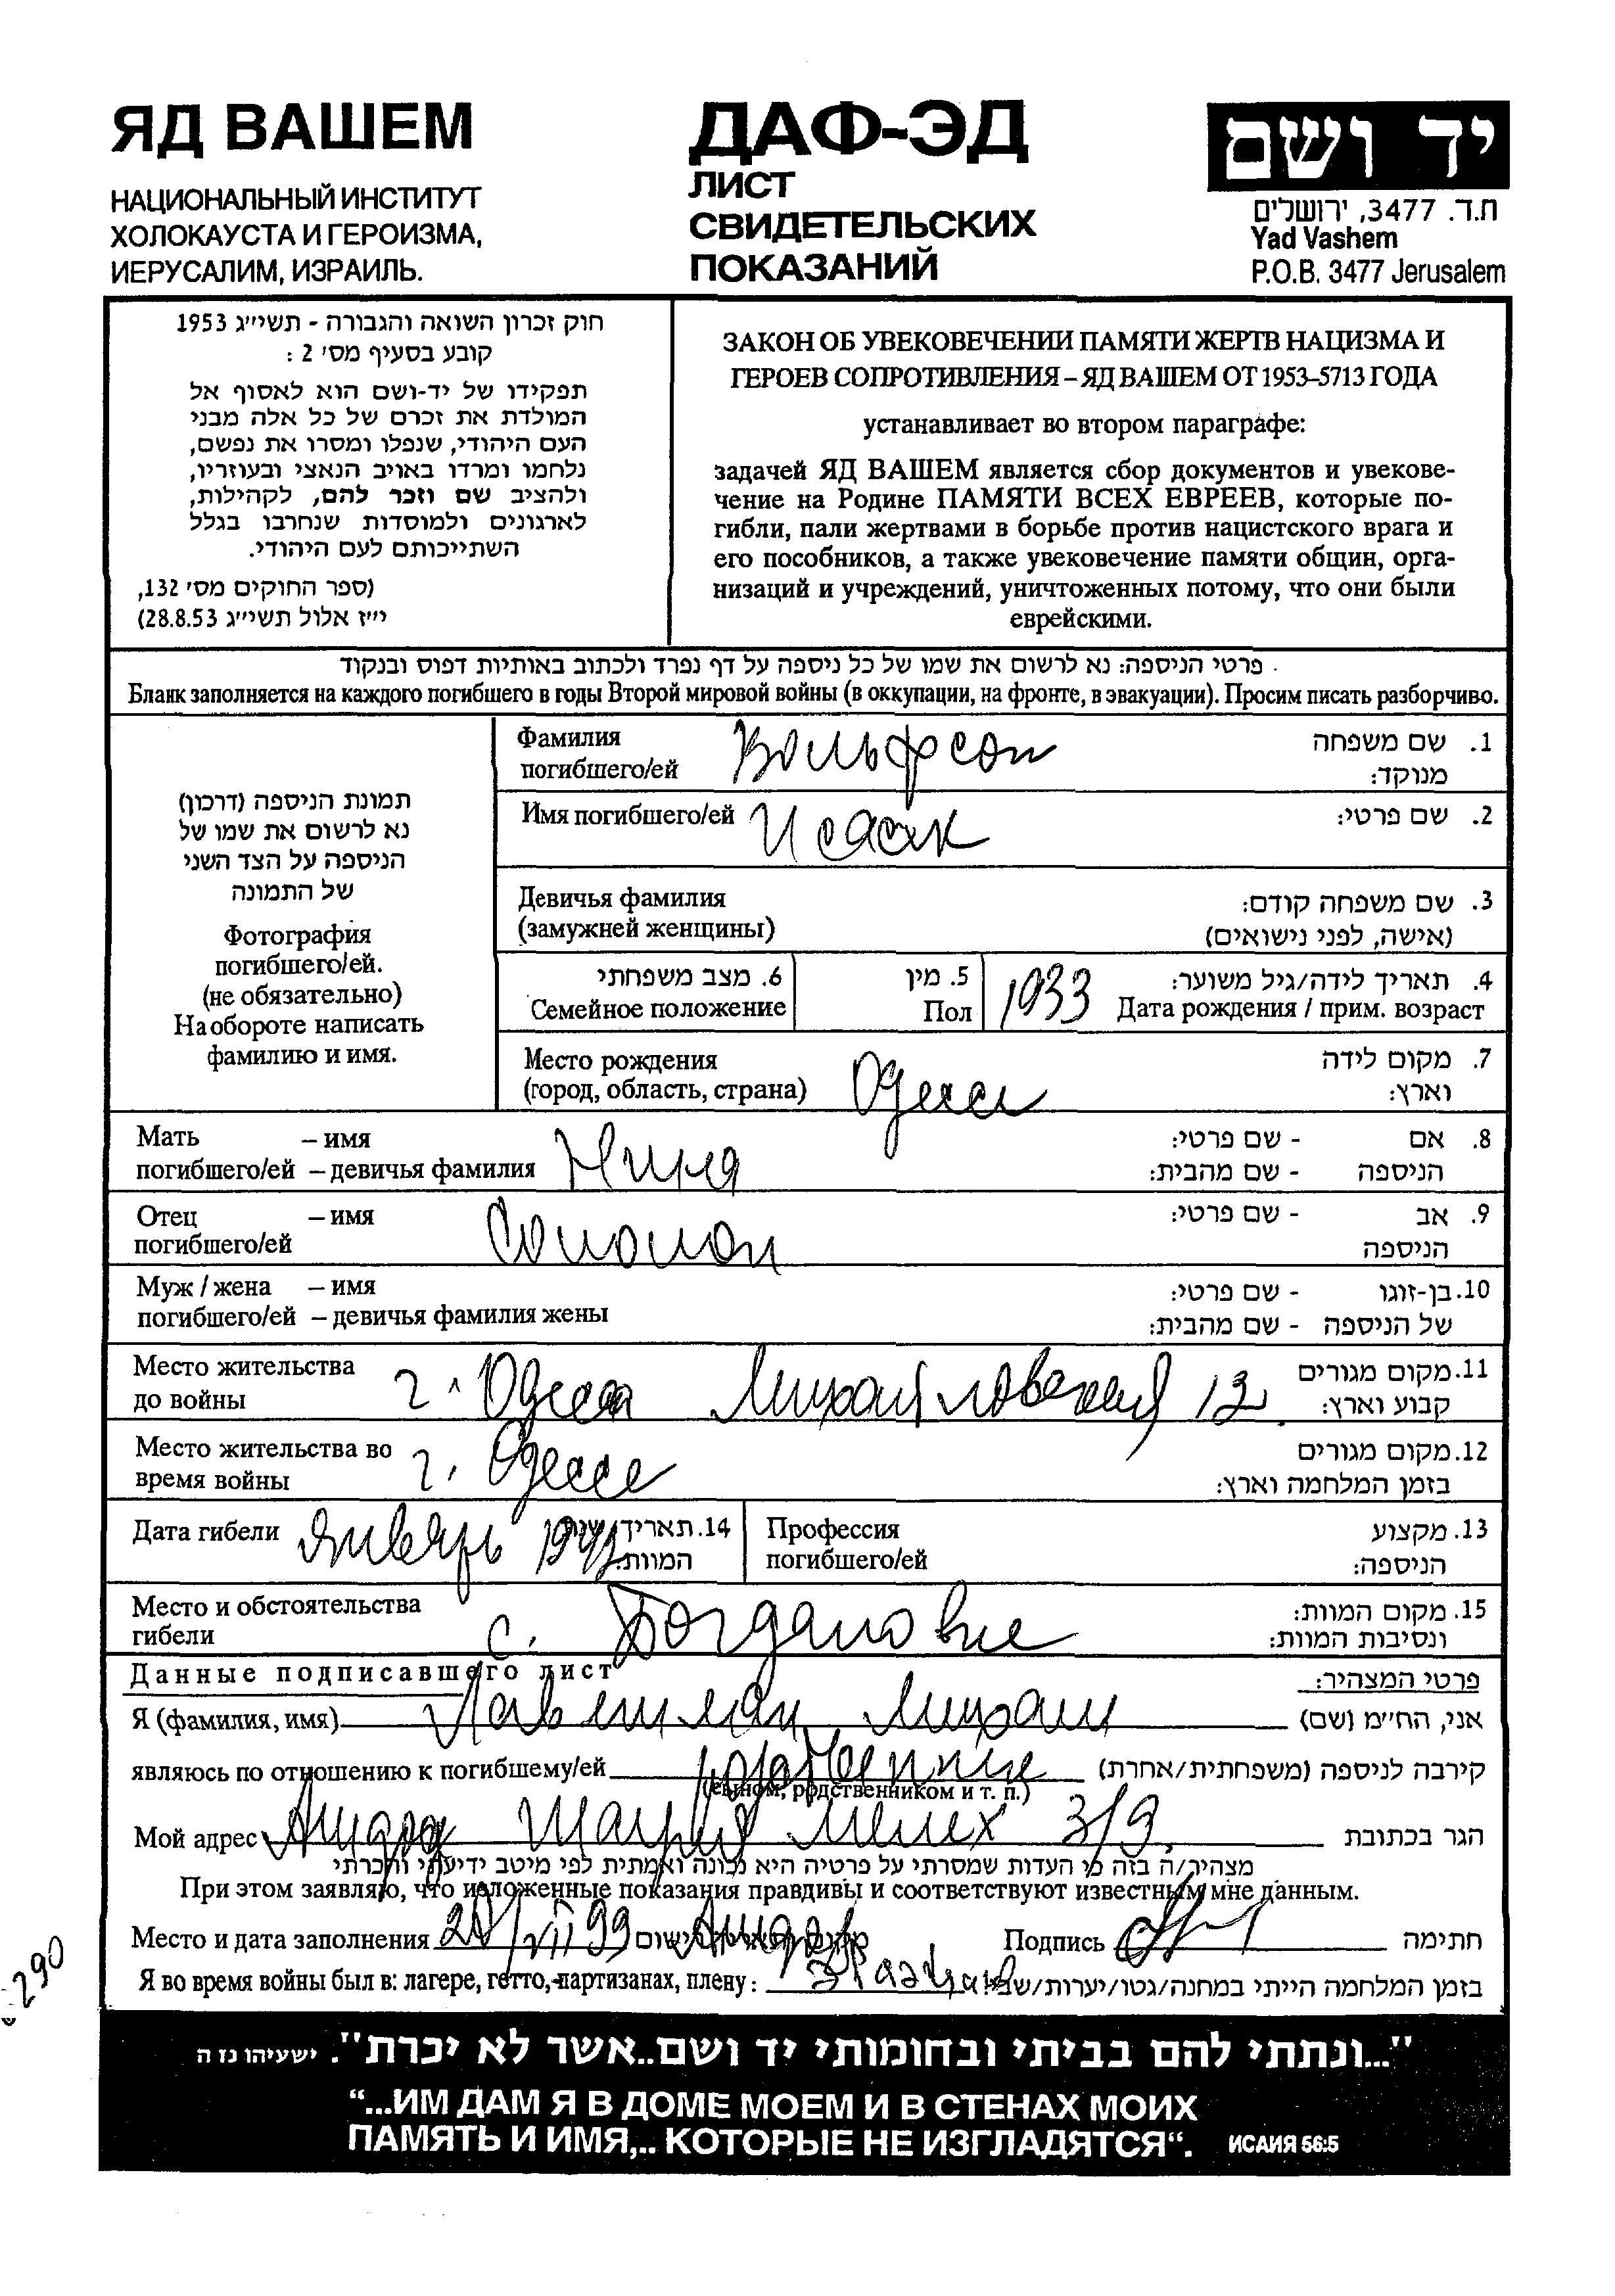 ЯД ВАШЕМ
НАЦИОНАЛЬНЫЙ ИНСТИТУТ
ХОЛОКАУСТА И ГЕРОИЗМА,
ИЕРУСАЛИМ, ИЗРАИЛЬ.
ДАФ-ЭД
ЛИСТ
СВИДЕТЕЛЬСКИХ
ПОКАЗАНИЙ
יד ושם
ת.ד. 3477, ירושלים
Yad Vashem
P.O.B. 3477 Jerusalem
חוק זכרון השואה והגבורה - תשי״ג 1953
קובע בסעיף מס׳ 2 :
תפקידו של יד-ושם הוא לאסוף אל
המולדת את זכרם של כל אלה מבני
העם היהודי, שנפלו ומסרו את נפשם,
נלחמו ומרדו באויב הנאצי ובעוזריו,
ולהציב שם וזכר להם, לקהילות,
לארגונים ולמוסדות שנחרבו בגלל
השתייכותם לעם היהודי.
(ספר החוקים מס׳ 132,
י״ז אלול תשי״ג 28.8.53)
ЗАКОН ОБ УВЕКОВЕЧЕНИИ ПАМЯТИ ЖЕРТВ НАЦИЗМА И
ГЕРОЕВ СОПРОТИВЛЕНИЯ – ЯД ВАШЕМ ОТ 1953–5713 ГОДА
устанавливает во втором параграфе:
задачей ЯД ВАШЕМ является сбор документов и увекове-
чение на Родине ПАМЯТИ ВСЕХ ЕВРЕЕВ, которые по-
гибли, пали жертвами в борьбе против нацистского врага и
его пособников, а также увековечение памяти общин, орга-
низаций и учреждений, уничтоженных потому, что они были
еврейскими.
פרטי הניספה: נא לרשום את שמו של כל ניספה על דף נפרד ולכתוב באותיות דפוס ובנקוד
Бланк заполняется на каждого погибшего в годы Второй мировой войны (в оккупации, на фронте, в эвакуации). Просим писать разборчиво.
תמונת הניספה (דרכון)
נא לרשום את שמו של
הניספה על הצד השני
של התמונה
Фотография
погибшего/ей.
(не обязательно)
На обороте написать
фамилию и имя.
Фамилия Вольфсон 1. שם משפחה
погибшего/ей מנוקד:
Имя погибшего/ей Исаак 2. שם פרטי:
Девичья фамилия 3. שם משפחה קודם:
(замужней женщины) (אישה, לפני נישואים)
6. מצב משפחתי 5. מין 1933 4. תאריך לידה/גיל משוער:
Семейное положение Пол Дата рождения / прим. возраст
Место рождения Одесса 7. מקום לידה
(город, область, страна) וארץ:
Мать – имя 8. אם - שם פרטי:
погибшего/ей – девичья фамилия Нина הניספה - שם מהבית:
Отец – имя Соломон 9. אב - שם פרטי:
погибшего/ей הניספה
Муж / жена – имя 10. בן-זוגו - שם פרטי:
погибшего/ей – девичья фамилия жены של הניספה - שם מהבית:
Место жительства г. Одесса Михайловская 12. 11. מקום מגורים
до войны קבוע וארץ:
Место жительства во г. Одесса 12. מקום מגורים
время войны בזמן המלחמה וארץ:
Дата гибели январь 14. תאריך המוות: Профессия 13. מקצוע
погибшего/ей הניספה:
Место и обстоятельства 15. מקום המוות:
гибели с. Богдановка ונסיבות המוות:
Данные подписавшего лист פרטי המצהיר:
Я (фамилия, имя) Михаил אני, הח״מ (שם)
являюсь по отношению к погибшему/ей קירבה לניספה (משפחתית/אחרת)
(сыном, родственником и т. п.)
Мой адрес Ашдод 3/9. הגר בכתובת
מצהיר/ה בזה כי העדות שמסרתי על פרטיה היא נכונה ואמתית לפי מיטב ידיעתי והכרתי
При этом заявляю, что изложенные показания правдивы и соответствуют известным мне данным.
Место и дата заполнения 20/VII 99 Ашдод Подпись חתימה
Я во время войны был в: лагере, гетто, партизанах, плену: בזמן המלחמה הייתי במחנה/גטו/יערות/שבי:
290
"...ונתתי להם בביתי ובחומותי יד ושם..אשר לא יכרת". ישעיהו נז ה
“...ИМ ДАМ Я В ДОМЕ МОЕМ И В СТЕНАХ МОИХ
ПАМЯТЬ И ИМЯ,.. КОТОРЫЕ НЕ ИЗГЛАДЯТСЯ“. ИСАИЯ 56:5